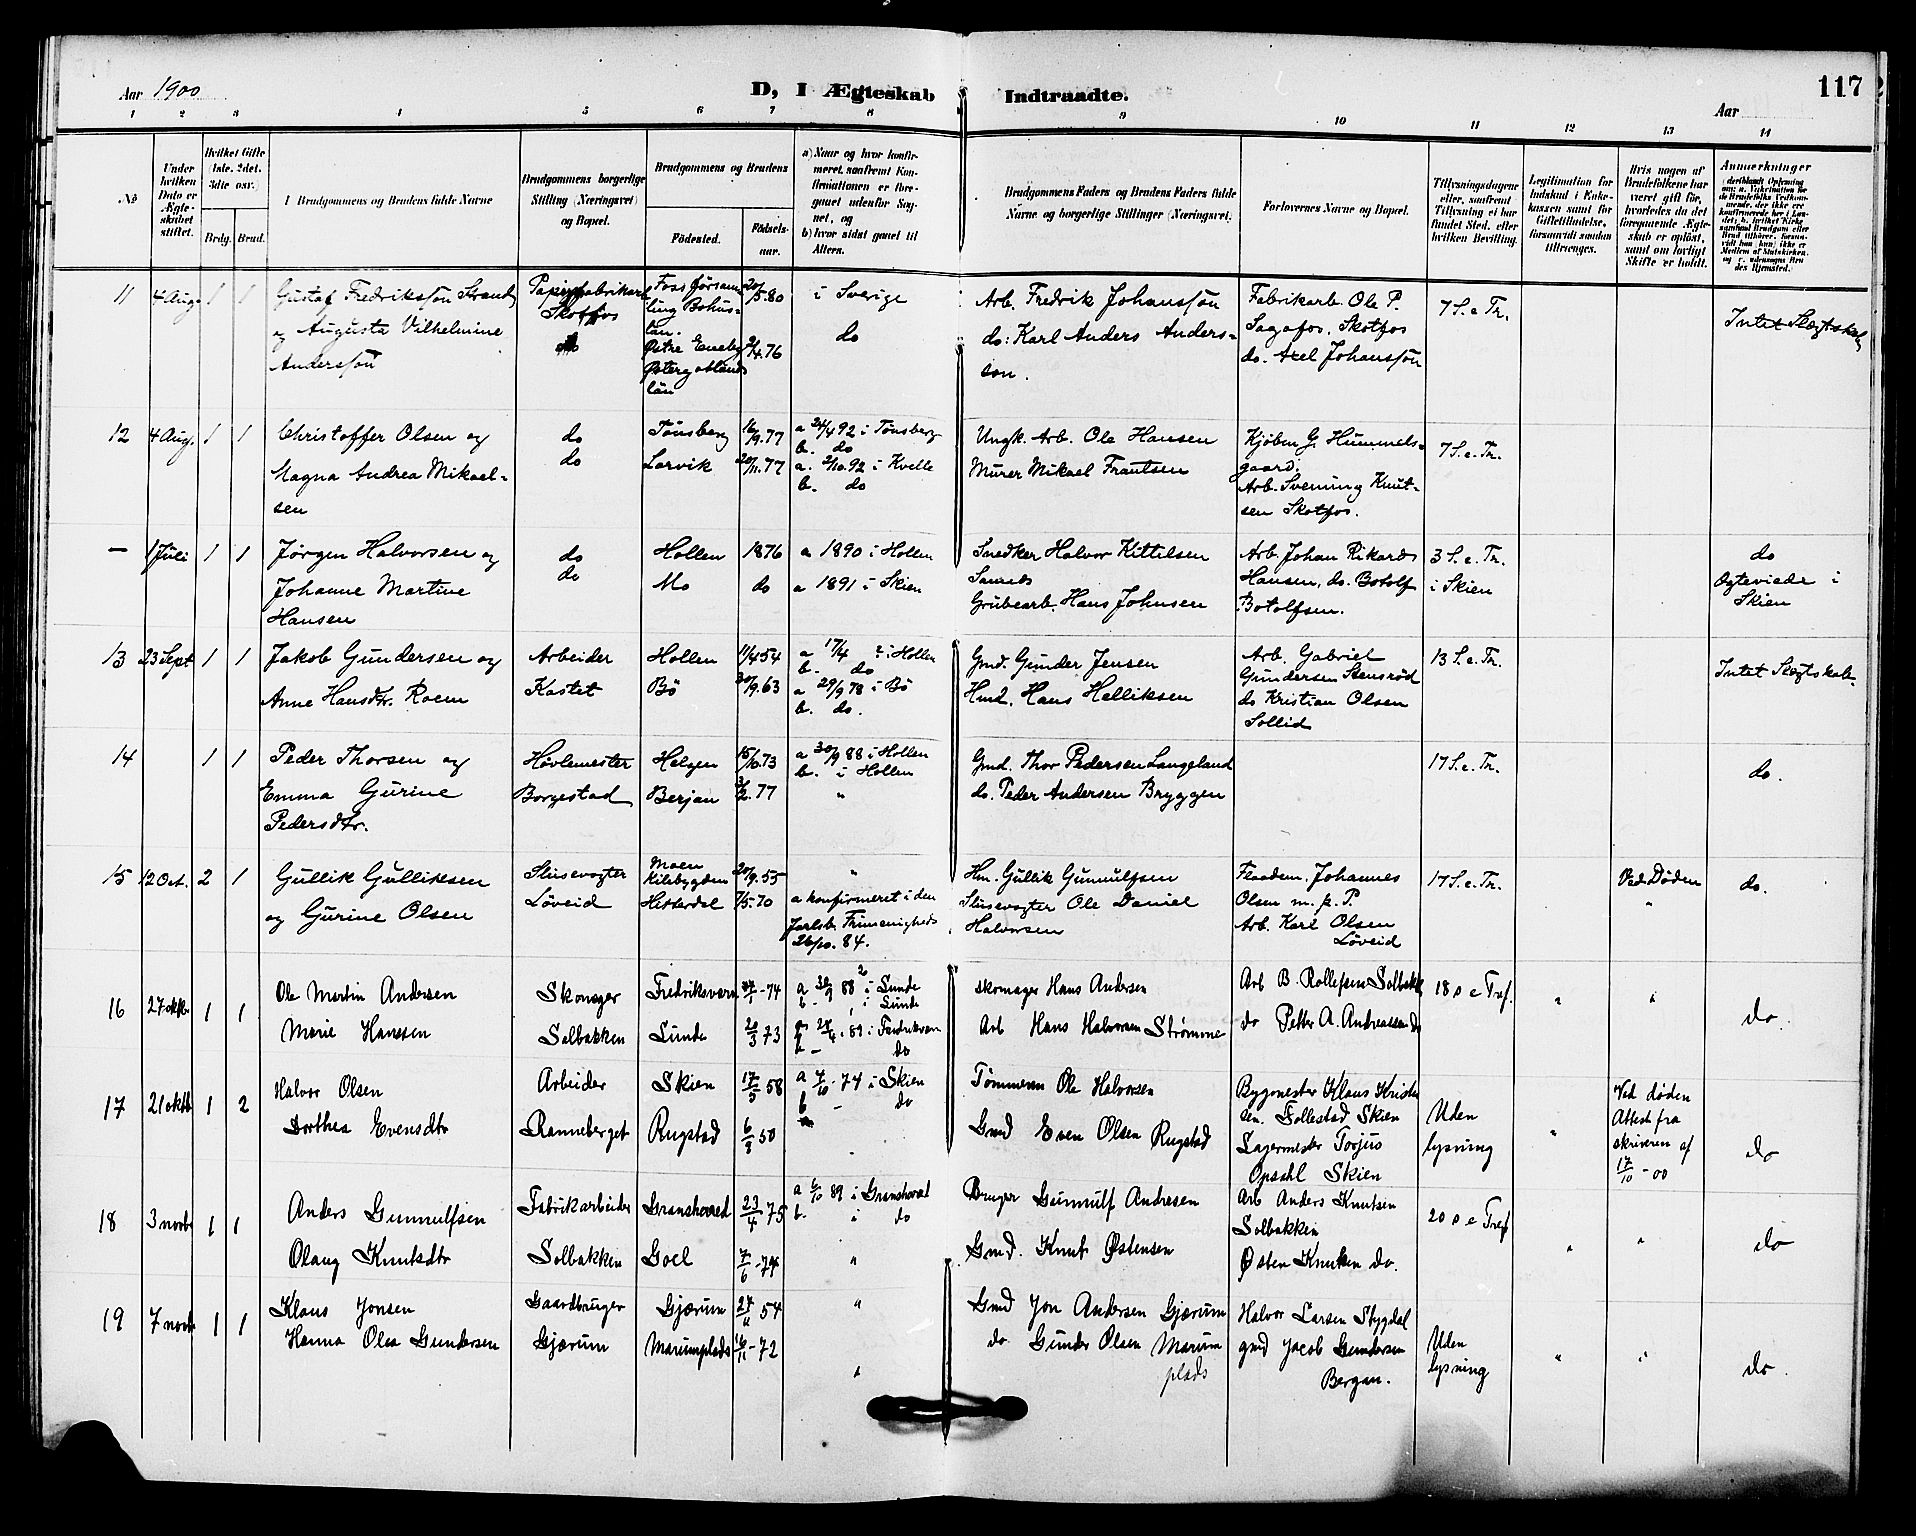 Aar 1900
D, I Ægteskab Indtraadte.
Aar
117
1 2 3 4 5 6 7 8 9 10 11 12 13 14
No
Under hvilken Dato er Ægteskabet stiftet.
Hvilket Gifte (1ste, 2det, 3die osv.)
Brdg. Brud.
I Brudgommens og Brudens fulde Navne
Brudgommens borgerlige Stilling (Næringsvei) og Bopæl.
Brudgommens og Brudens
Fødested.
Fødselsaar.
a) Naar og hvor konfirmeret, samt fremt Konfirmationen er foregaaet udenfor Sognet, og
b) hvor sidst gaaet til Altern.
Brudgommens Faders og Brudens Faders fulde Navne og borgerlige Stillinger (Næringsvei).
Forlovernes Navne og Bopæl.
Tillysningsdagene eller, samfremt Tillysning ei har fundet Sted, efter hvilken Bevilling.
Legitimation for Indskud i Enkekassen samt for Giftetilladelse, forsaavidt saadan tiltrænges.
Hvis nogen af Brudefolkene har været gift før, hvorledes da det foregaaende Ægteskab er opløst, samt om lovligt Skifte er holdt.
Anmærkninger
11 4 Aug 1 1 Gustaf Fredriksson Strand Papirfabrikarb. Foss Jørsamling Bohuslän. 20/5.80 i Sverige Arb. Fredrik Johansson Fabrikarb. Ole P. Sagafos, Skotfos 7 S. e Tr. Intet Slegtskab
og Augusta Vilhelmine Andersson Skotfos do Östre Eneby Östergötlands län 2/4.76 do do: Karl Anders Andersson. do. Axel Johansson
12 4 Aug. 1 1 Christoffer Olsen og do Tønsberg 16/9.77 a 24/4 92 i Tønsberg b. do Ungk. Arb. Ole Hansen Kjøbm G. Hummelsgaard. 7 S. e. Tr.
Magna Andrea Mikaelsen do Larvik 20/11.77 a. 2/10.92 i Kvelle b. do Murer Mikael Frantsen Arb. Svenung Knutsen Skotfos.
— 1 Juli 1 1 Jørgen Halvorsen og do Hollen 1876 a 1890 i Hollen Snedker Halvor Kittilsen Arb. Johan Rikard Hansen, do. Botolf Botolfsen. 3 S. e. Tr. i Skien do
Johanne Martine Hansen do Mo do a 1891 i Skien Grubearb. Hans Johnsen Egteviede i Skien
13 23 Sept 1 1 Jakob Gundersen og Arbeider Hollen 11/4 54 a 17/4 ? i Hollen b. do Gmd. Gunder Jensen Arb. Gabriel Gundersen Stensrød 13 S. e. Tr. Intet Slegtskab.
Anne Hansdtr. Roem Kastet Bø 30/9.63 a 29/9 78 i Bø b. do. Hmd. Hans Helliksen do Kristian Olsen Sollid
14 1 1 Peder Thorsen og Høvlemester Helgen 15/6.73 a 30/9 88 i Hollen b. i Hollen Gmd. Thor Pedersen Langeland 17 S. e. Tr. do.
Emma Gurine Pedersdtr. Borgestad Berjan 3/2.77 " do. Peder Andersen Bryggen
15 12 Oct. 2 1 Gullik Gulliksen Slusevogter Moen Kilebygden 20/9.55 " Hm. Gullik Gunnulfsen Flaadem. Johannes Olsen m. p. P. 17 S. e. Tr. Ved Døden do.
og Gurine Olsen Løveid Hitterdal 7/5.70 a konfirmeret i den Jarlsb. Frimenigheds 26/10. 84. Slusevogter Ole Daniel Halvorsen Arb. Karl Olsen Løveid "
16 27 okt. 1 1 Ole Martin Andersen Skomager Fredriksværn 27/1-74 a 30/9 88 i Lunde b - i Lunde skomager Hans Andersen Arb B. Rollefsen Solbakk 18 s e Tref. " " do.
Marie Hanssen Solbakken Lunde 20/3 73 a 28/4 89 i Fredriksværn b - do Arb Hans Halvorsen Strømme do Petter A. Andreassen do
17 21 oktb 1 2 Halvor Olsen Arbeider Skien 17/5 58 a 4/10-74 i Skien b - do Tømmerm Ole Halvorsen Bygmester Klaus Kristensen. Follestad Skien Uden lysning " Ved døden Attest fra skriveren af 17/10-00 do
Dorthea Evensdtr Ranneberget Rugstad 6/8 50 Gmd Even Olsen Rugstad Lagermester Torjus Opsahl Skien
18 3 novb 1 1 Anders Gunnulfsen Fabrikarbeider Granshoved 23/4 75 a 6/10 89 i Granshoved b. i do Bruger Gunnulf Andresen Arb Anders Knutsen Solbakken 20 s e Tref " " do
Olaug Knutsdtr Solbakken Goel 7/6-74 " Gmd. Knut Østensen Østen Knutsen do.
19 7 novb 1 1 Klaus Jonsen Gaardbruger Gjærum 27/11 54 " Gmd Jon Andersen Gjærum Halvor Larsen Stygdal Uden lysning " " do
Hanna Olea Gundersen Gjærum Marumplads 16/11-72 " do Gunder Olsen Marumplads gmd Jacob Gundersen Bergan.